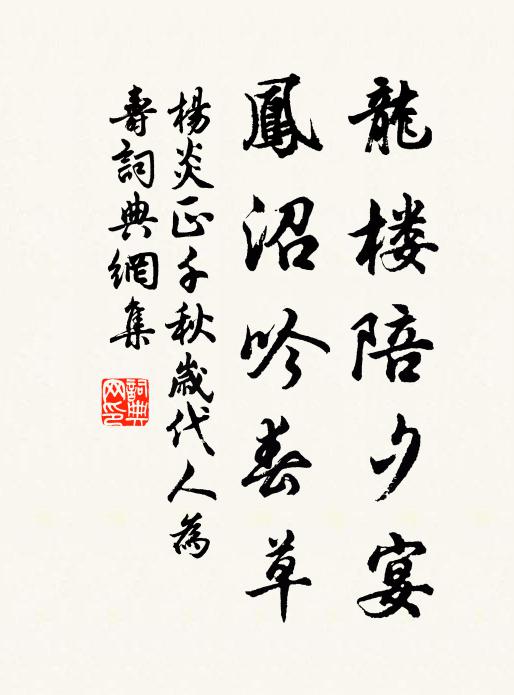 龍楼陪夕宴
鳳沼吟春草
楊炎正千秋歳代人為
壽詞典網集
詞典
网印